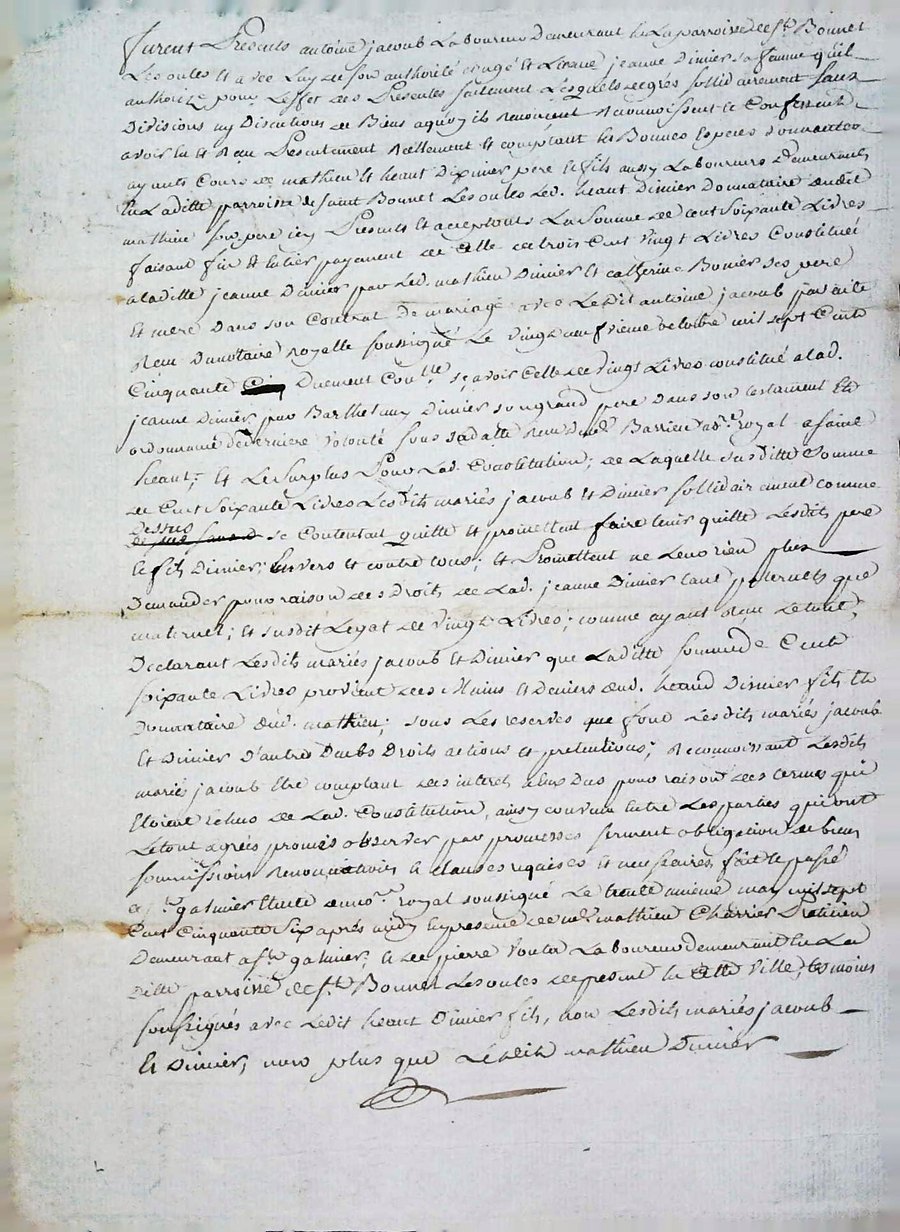 furent Presents antoine jacoub Laboureur Demeurant en La parroisse de st. Bonnet
Les oules et avec Luy de son authorité congé et Licance jeanne Dimier sa femme qu'il
authorize pour L'effet des Presentes facilement Lesquels de grés sollidairement sans
Divisions ny Discutions de Biens a quoy ils Renoncent Reconnoissent et Confessent
avoir eu et Reçu Presentement Réellement et comptant en Bonnes Especes sonnantes
ayants Cours de mathieu et heant Dimier pere et fils aussy Laboureurs Demeurants
en Laditte parroisse de saint Bonnet Les oules Led. heant Dimier Donnataire dudit
mathieu son pere icy Presents et acceptants La somme de cent soixante Livres
faisant fin et entier payement de Celle de trois Cent vingt Livres Constituée
a laditte jeanne Dimier par Led. mathieu Dimier et catherine Bonier ses pere
et mere Dans son Contrat de mariage avec Ledit antoine jacoub par acte
Reçu Du notaire Royelle soussigné Le vingt neufvieme octobre mil sept Cent
Cinquante Duement Conllé. sçavoir Celle de vingt Livres constitué a lad.
jeanne Dimier par Barthelemy Dimier son grand pere Dans son testament et
ordonnance de derniere volonté sous sa datte Reçu Barrieu nore. royal a saint
heant; et Le surplus Pour Lad. Constitution; de Laquelle susditte somme
de Cent soixante Livres Lesdits mariés jacoub et Dimier sollidairement comme
Dessus se Contentant quitte et promettent faire tenir quitte Lesdits pere
et fils Dimier; Envers et contre tous; et Promettent ne Leur rien plus
Demander pour raison des Droits de Lad. jeanne Dimier tant paternels que
maternel; et susdit Legat de vingt Livres; comme ayant Reçu Le tout;
Declarant Lesdits mariés jacoub et Dimier que Laditte somme de Cent
soixante Livres provient des Mains et Deniers dud. heand Dimier fils et
Donnataire dud. mathieu; sous Les reserves que font Lesdits mariés jacoub
et Dimier D'autres Leurs Droits actions et pretentions; Reconnoissant Lesdits
mariés jacoub Etre comptant des interet a Eux Dus pour raison des termes qui
Etoient Echus de Lad. Constitution, ainsy convenu entre Les parties qui ont
Le tout agréé promis observer par promesses serment obligation de biens
soummissions Renonciations et clauses requises et necessaires, fait et passé
a st. galmier Etude du nore. royal soussigné Le trente uniéme may mil sept
Cent Cinquante six après midy en presence de me. mathieu Charrier Praticien
Demeurant a st. galmier, et de pierre Laboureur demeurant en La
ditte parroisse de st. Bonnet Les oules de present en cette ville, temoins
soussignés avec Ledit heant Dimier fils, non Lesdits mariés jacoub
et Dimier, non plus que Ledit mathieu Dimier